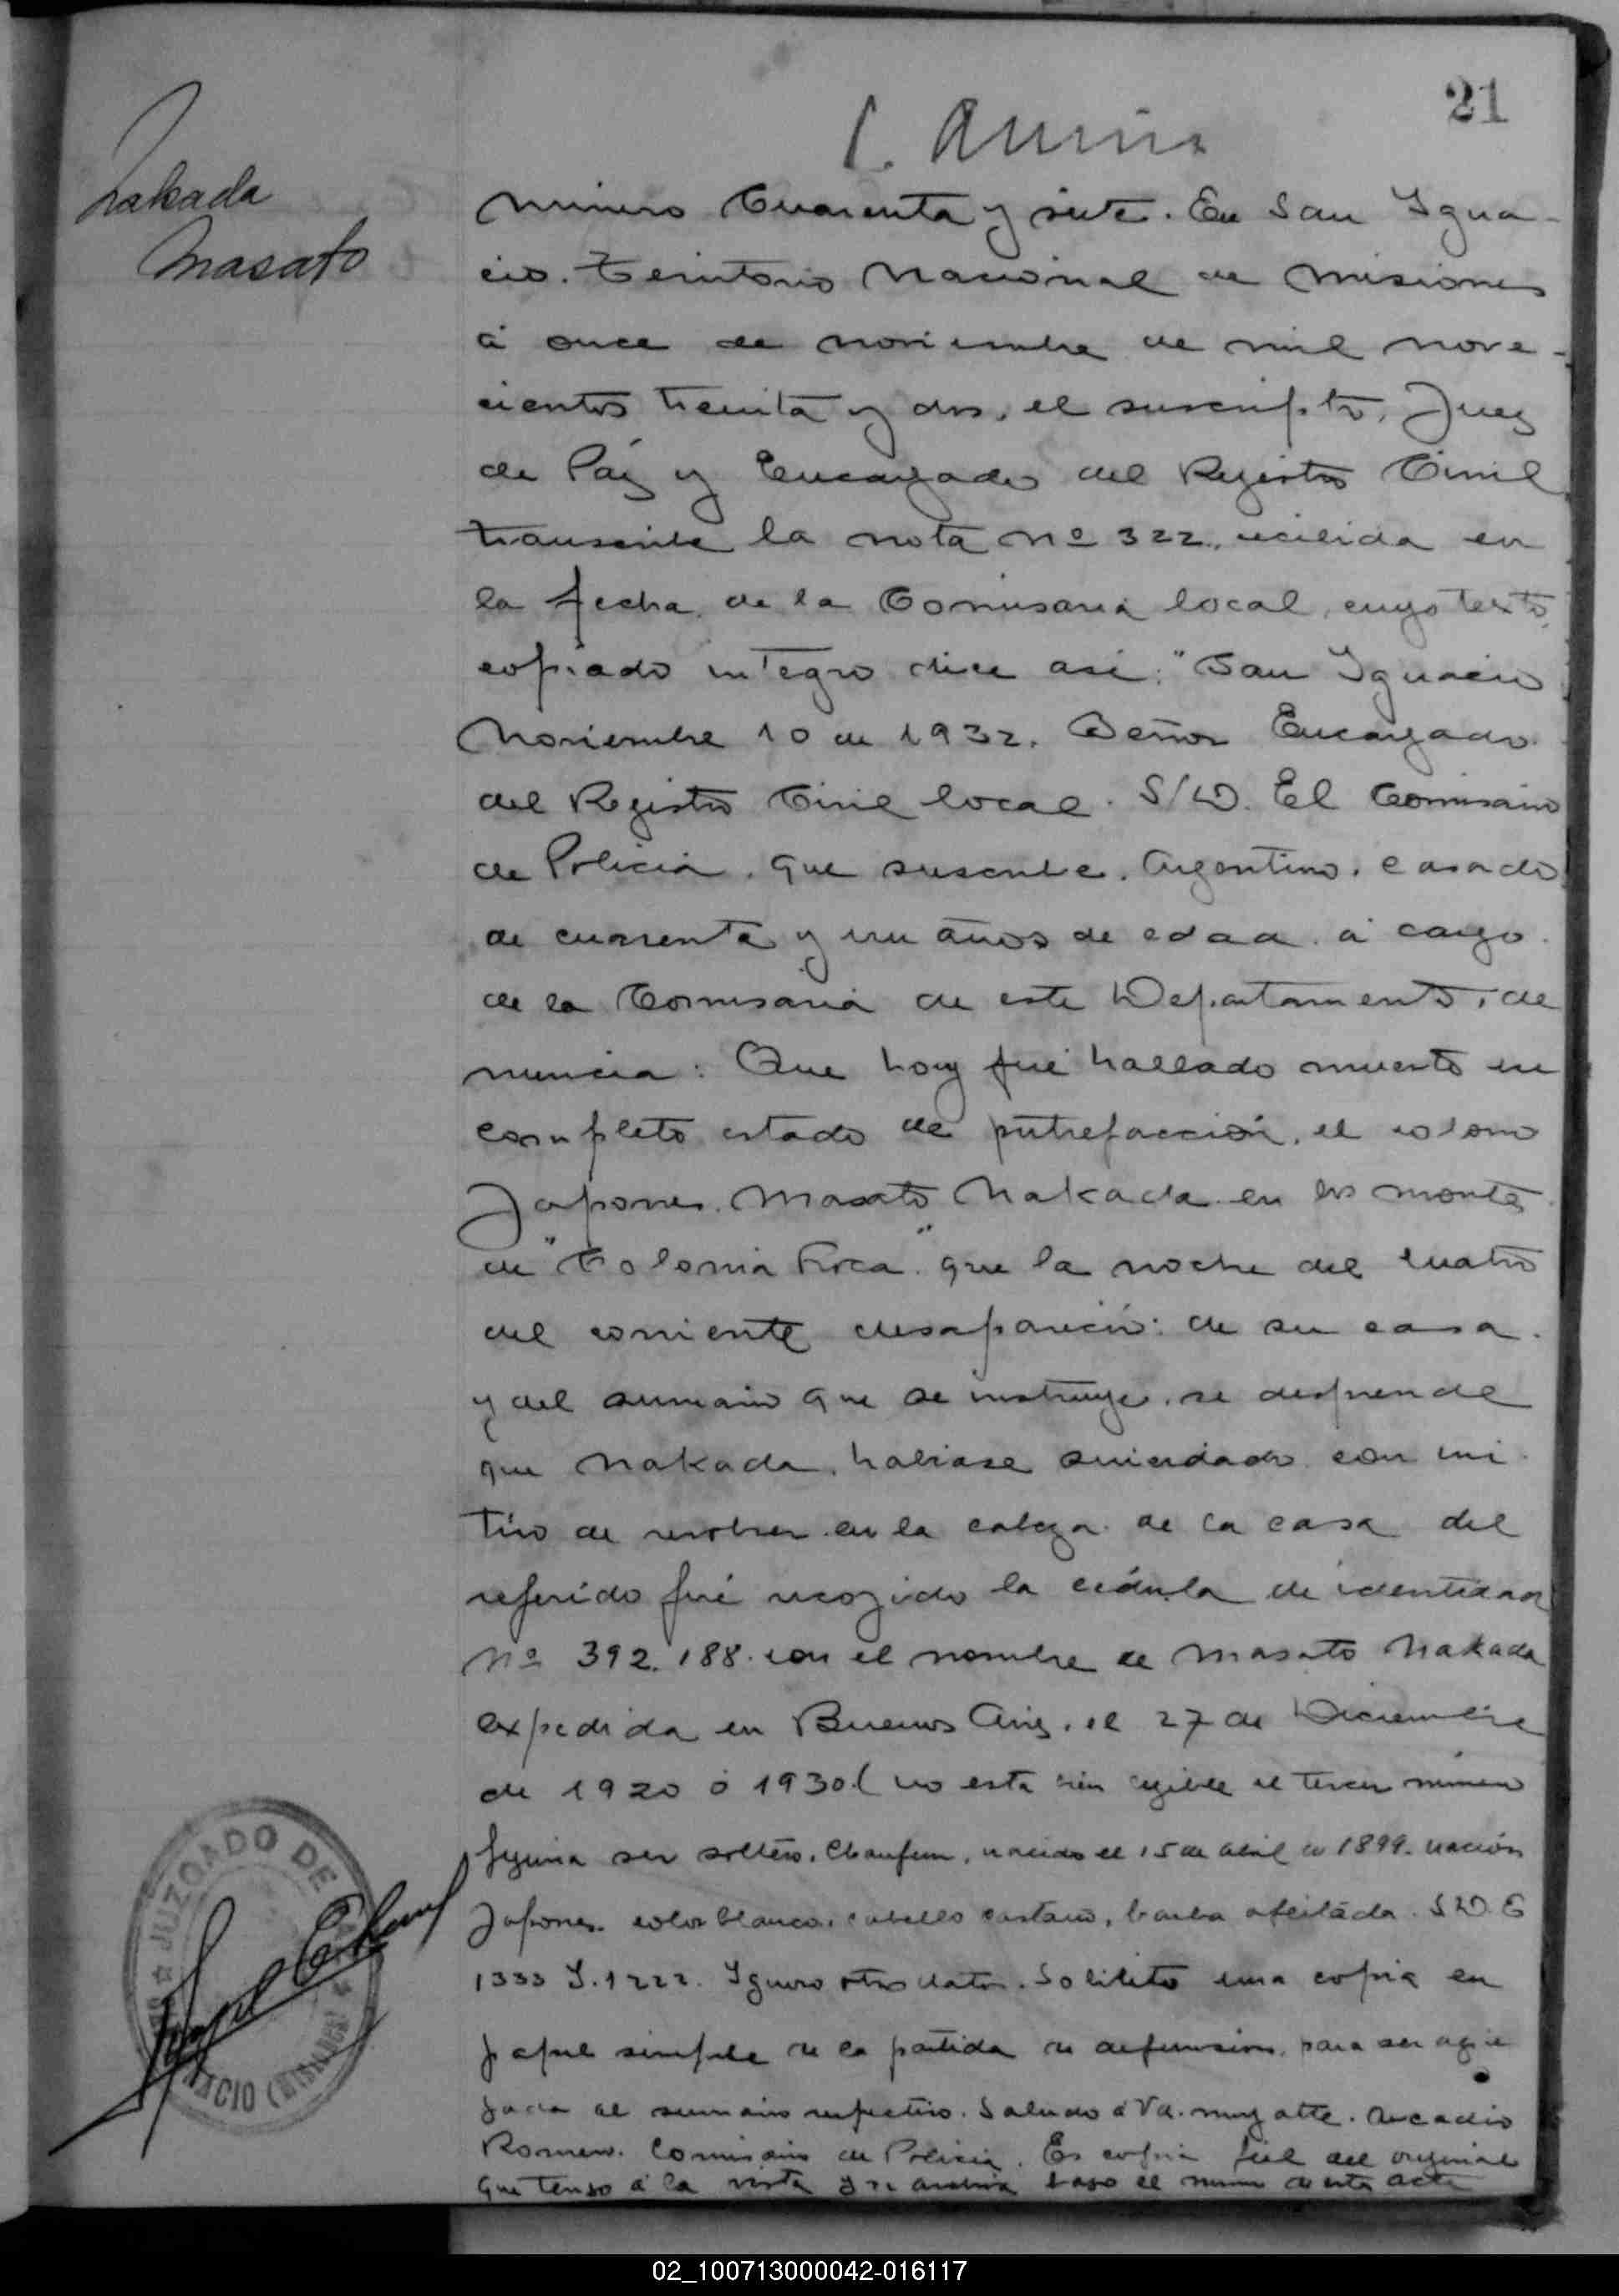 21
Nakada
Masato
Número Cuarenta y siete. En San Igna-
cio. Territorio Nacional de Misiones
á once de noviembre de mil nove-
cientos treinta y dos, el suscripto, Juez
de Páz y Encargado del Registro Civil
transcribe la nota Nº 322, recibida en
la fecha de la Comisaria local, cuyo texto
copiado integro dice asi: "San Ignacio
Noviembre 10 de 1932. Señor Encargado
del Registro Civil local. S/D. El Comisario
de Policia, que suscribe, Argentino, casado
de cuarenta y un años de edad, á cargo
de la Comisaria de este Departamento, de
nuncia: Que hoy fué hallado muerto en
completo estado de putrefacción, el colono
Japones, Masato Nakada en los montes
de "Colonia Roca" que la noche del cuatro
del corriente desapareció de su casa
y del sumario que se instruye, se desprende
que Nakada, habiase suicidado con un
tiro de revolver en la cabeza. de la casa del
referido fué recogido la cédula de identidad
Nº 392.188. con el nombre de Masato Nakada
expedida en Buenos Aires, el 27 de Diciembre
de 1920 ó 1930 (no esta bien legible el tercer número
figura ser soltero, Chaufeur, nacido el 15 de Abril de 1899. nación
Japones. color blanco, cabello castaño, barba afeitada. S.D. E
1333 I. 1222. Ignoro otros datos. Solicito una copia en
papel simple de la partida de defunsión, para ser agre
gada al sumario respectivo. Saludo á Vd. muy atte. Arcadio
Romero. Comisario de Policia. Es copia fiel del original
que tengo á la vista y se archiva bajo el num de esta acta
JUZGADO DE PAZ
IGNACIO (MISIONES)
02_100713000042-016117